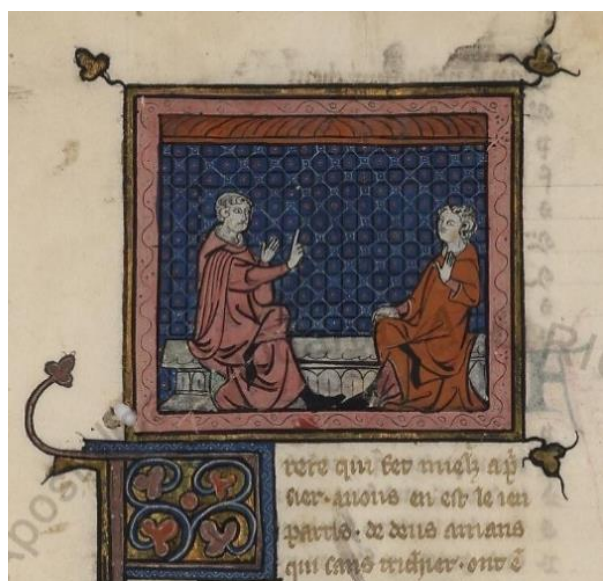 Frere qui fet mielz ap̃
sier. auous en est le ieu
partis. de deus amans
qui sans trichier. ont ē